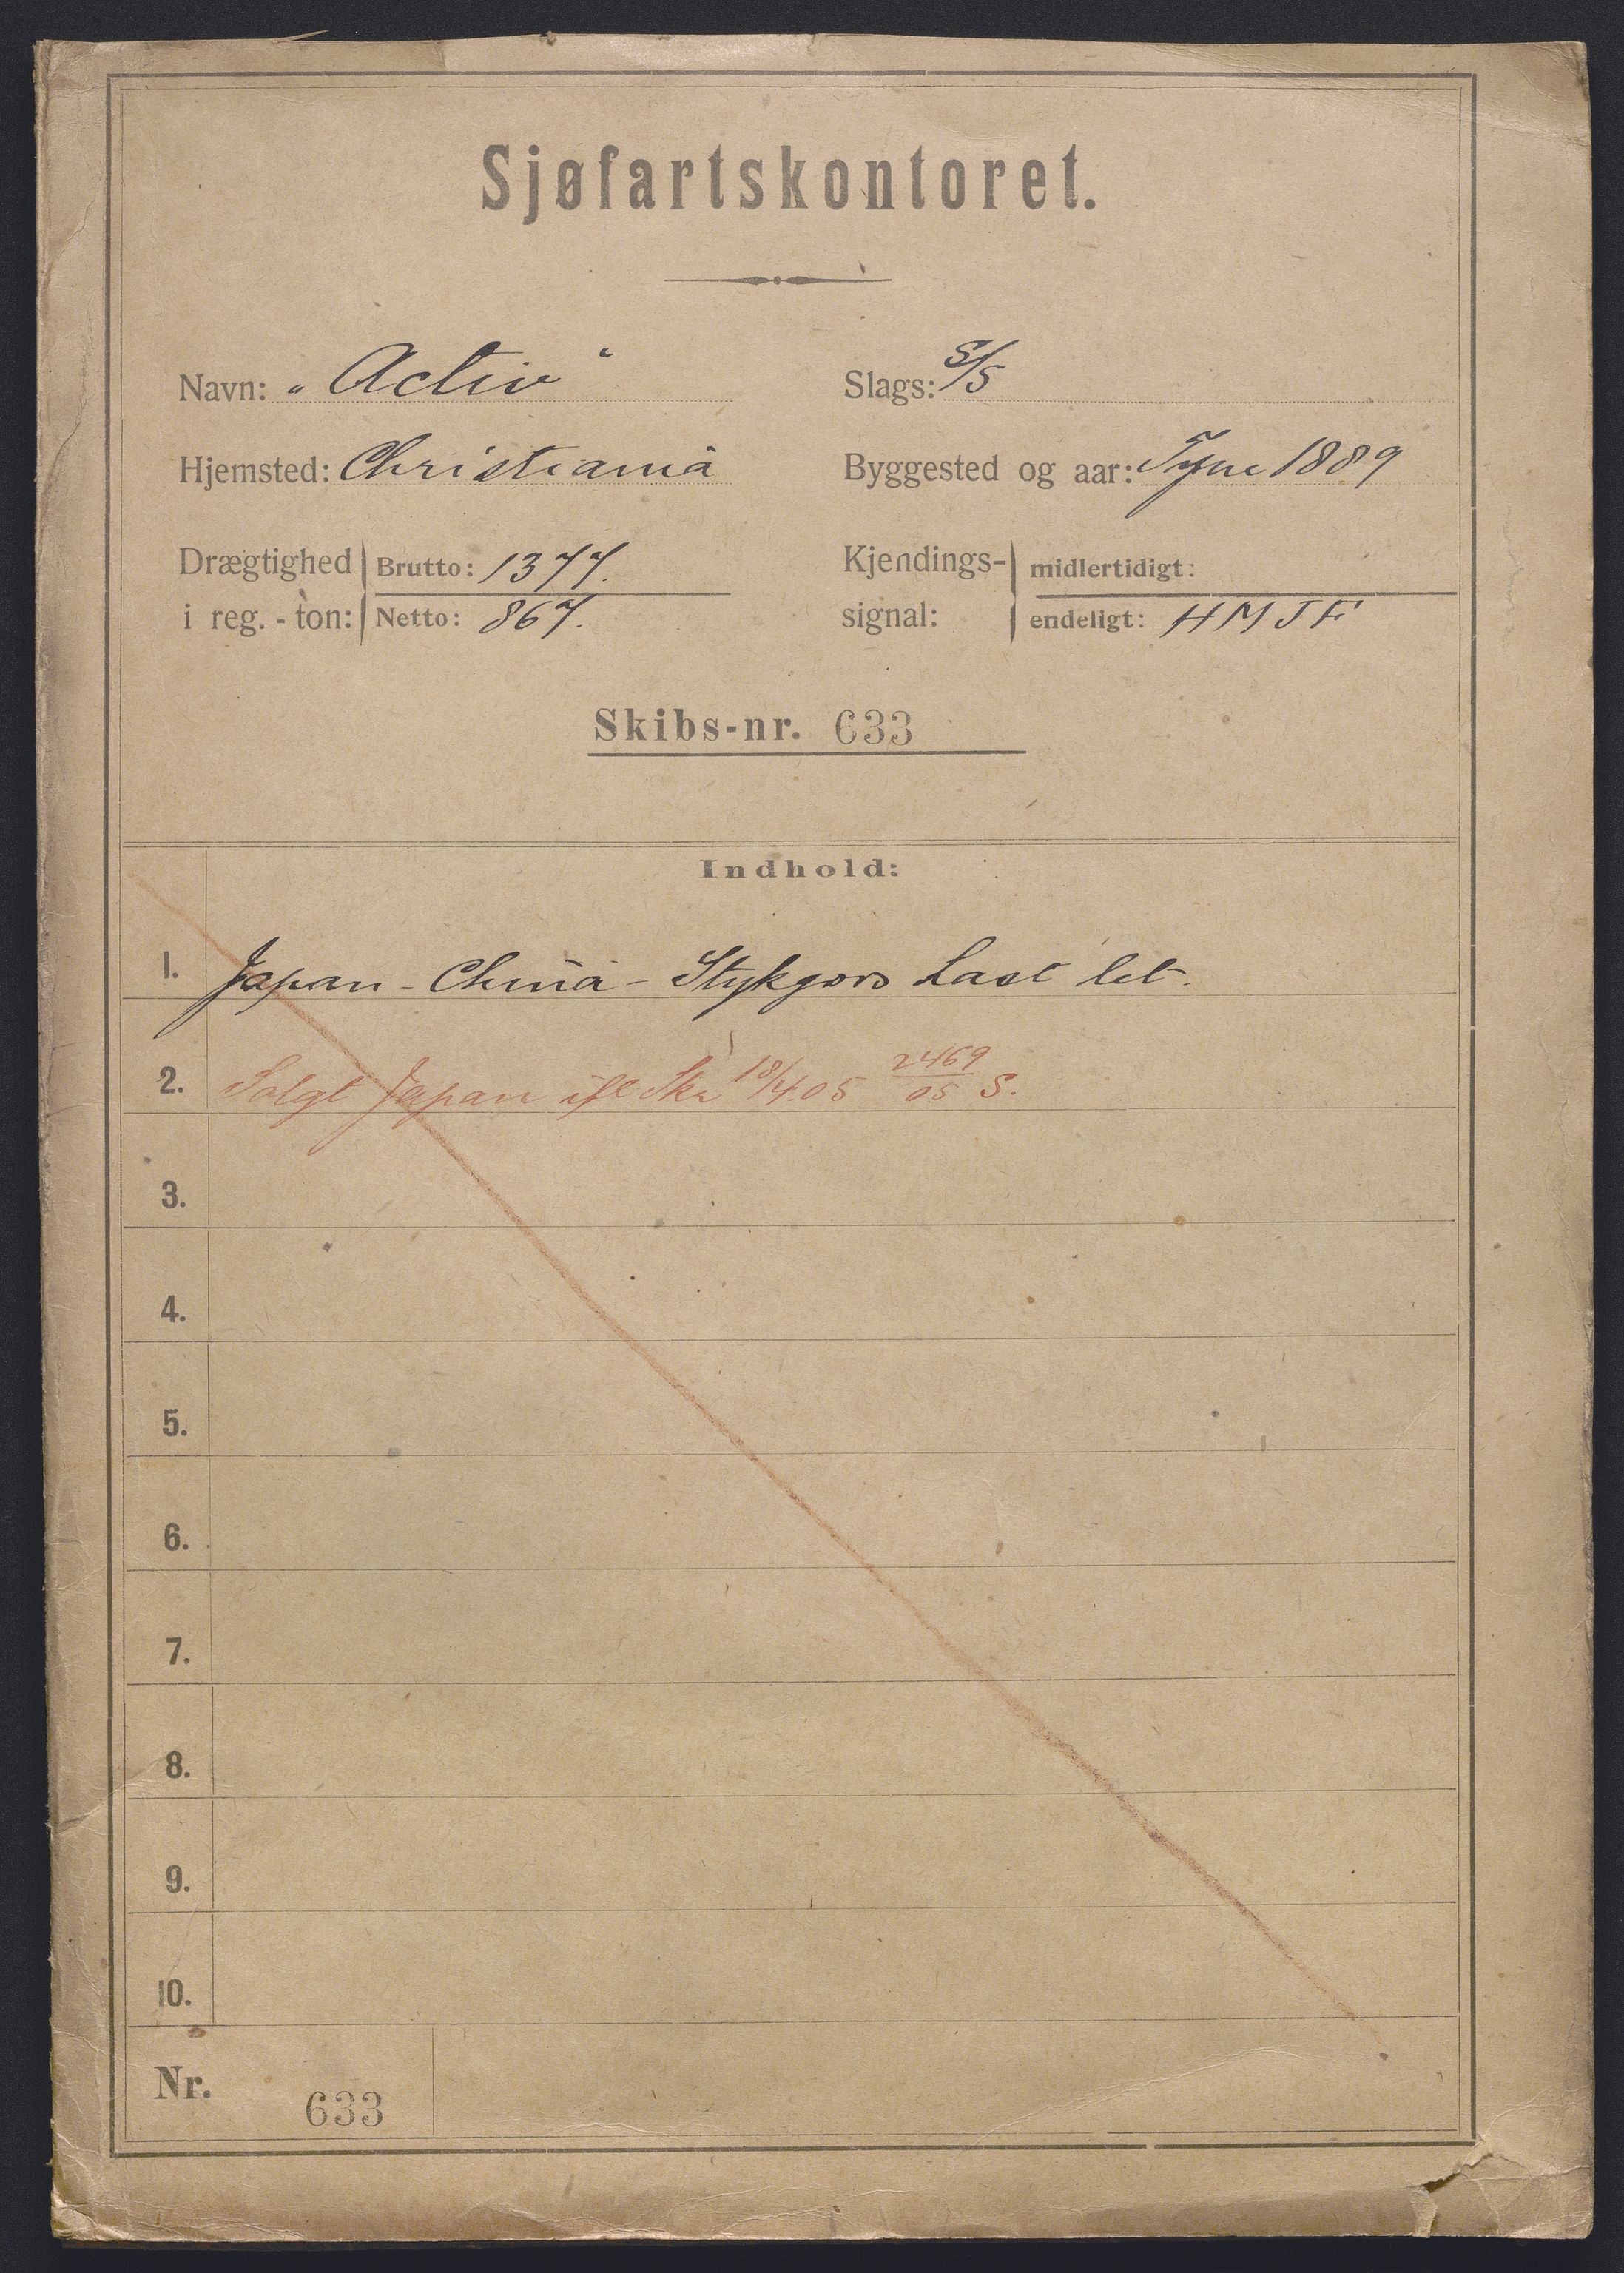 Sjøfartskontoret.
Navn: „Activ“ Slags: S/S
Hjemsted: Christiania Byggested og aar: Tyne 1889
Drægtighed i reg.-ton: Brutto: 1377. Kjendings-signal: midlertidigt:
Netto: 867. endeligt: HMJF
Skibs-nr. 633
Indhold:
1. Japan - China - Stykgods Last let.
2. Solgt Japan ifl Ska 18/4.05 2469/05 S.
3.
4.
5.
6.
7.
8.
9.
10.
Nr. 633